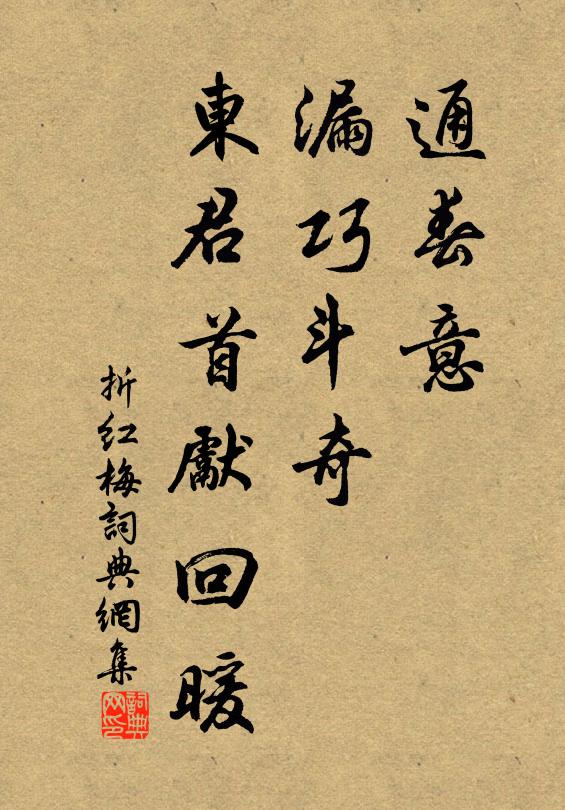 通春意
漏巧斗奇
東君首獻回暖
折红梅詞典網集
詞典
网印